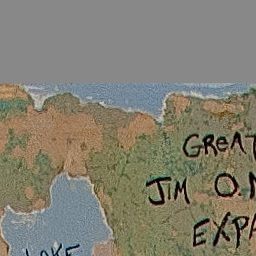 GREAT
JIM ON
EXPA
LAKE